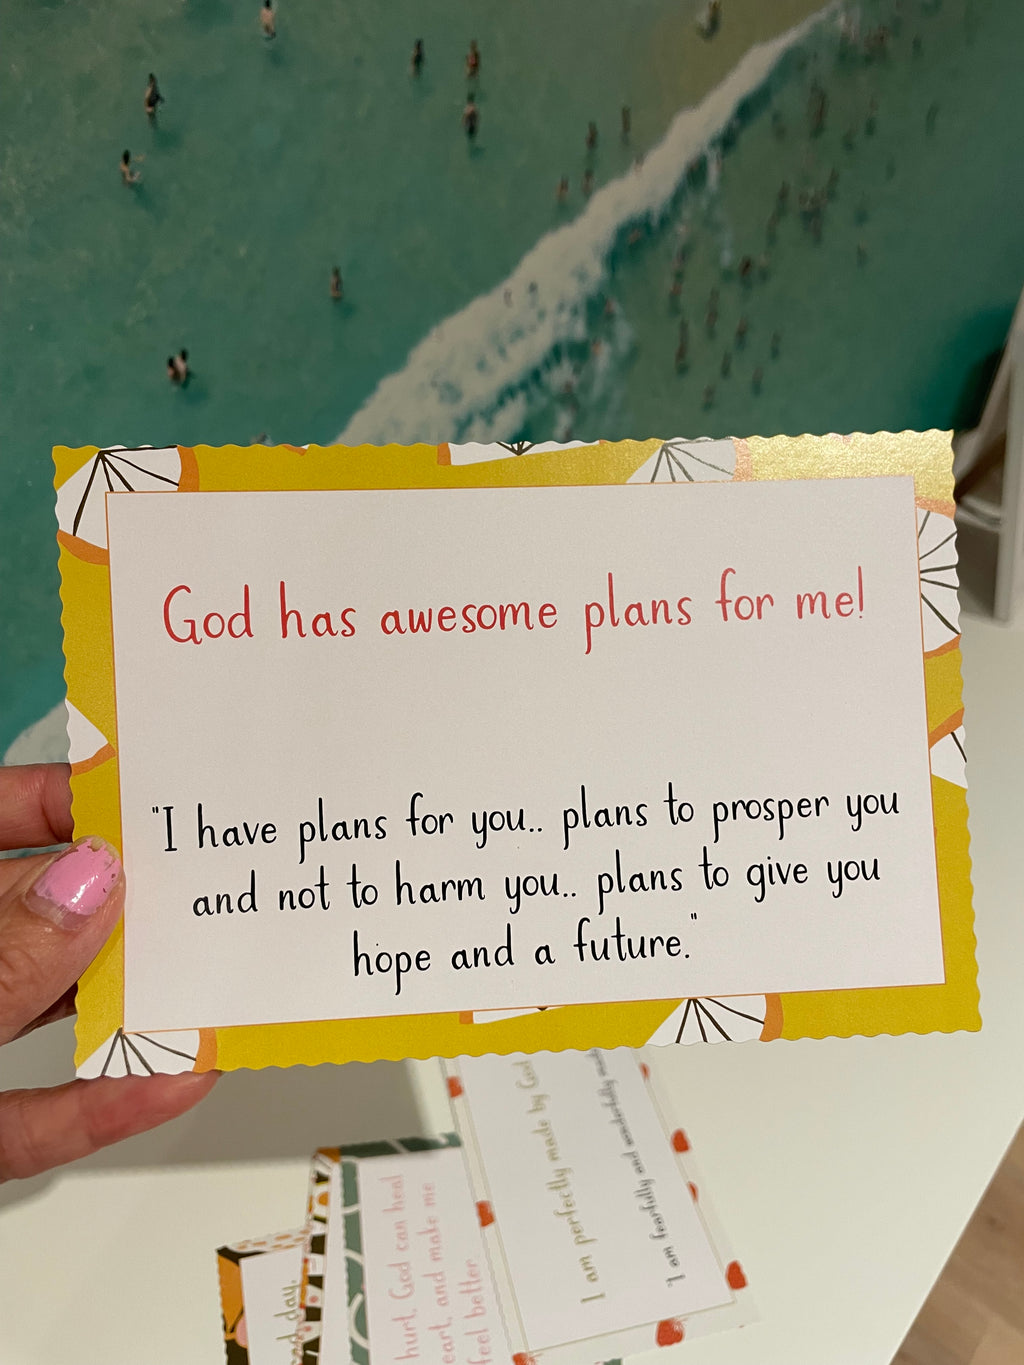 God has awesome plans for me!
"I have plans for you.. plans to prosper you
and not to harm you.. plans to give you
hope and a future."
I am perfectly made by God
"I am fearfully and wonderfully made
hurt, God can heal
eart, and make me
feel better
day.